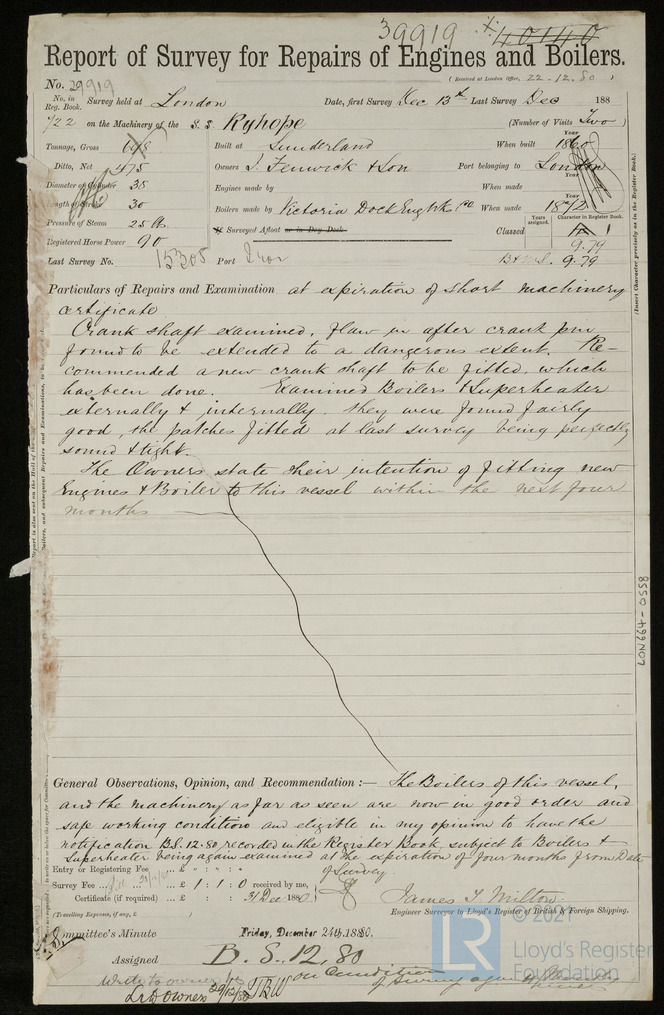 39919 40140
Report of Survey for Repairs of Engines and Boilers.
(Received at London Office, 22.12.80)
No. 39919
No. in Reg. Book. Survey held at London Date, first Survey Dec 13th Last Survey Dec 188
722 on the Machinery of the S.S. Ryhope (Number of Visits Two)
Tonnage, Gross Built at Sunderland When built Year 1860
Ditto, Net 475 Owners J. Fenwick & Son Port belonging to London
Diameter of Cylinder 38 Engines made by When made Year
Length of Stroke 30 Boilers made by Victoria Dock Eng Wks Co. When made Year 1872
Pressure of Steam 25 lbs Surveyed Afloat or in Dry Dock Classed Years assigned. Character in Register Book.
9.79
Registered Horse Power 90 B & M.S. 9.79
Last Survey No. 15305 Port
Particulars of Repairs and Examination at expiration of short machinery
certificate
Crank shaft examined, flaw in after crank pin
found to be extended to a dangerous extent. Re-
commended a new crank shaft to be fitted, which
has been done. Examined Boilers & Superheater
externally & internally. They were found fairly
good, the patches fitted at last survey being perfectly
sound & tight.
The Owners state their intention of fitting new
Engines & Boiler to this vessel within the next four
months
General Observations, Opinion, and Recommendation :— The Boilers of this vessel,
and the machinery as far as seen are now in good order and
safe working condition and eligible in my opinion to have the
notification B.S. 12.80 recorded in the Register Book subject to Boilers &
Superheater being again examined at the expiration of four months from Date
of Survey
Entry or Registering Fee £ : :
Survey Fee £ 1 : 1 : 0 received by me,
Certificate (if required) £ : : 31 Dec 1880
James T. Milton
(Travelling Expenses, if any, £ )
Engineer Surveyor to Lloyd's Register of British & Foreign Shipping.
Committee's Minute Friday, December 24th, 1880.
Assigned B.S. 12.80
on Condition
of Survey again
Write to owner
29/12/80
(Insert Character precisely as in the Register Book.)
LON664-0558
© 2021
LR
Lloyd's Register
Foundation